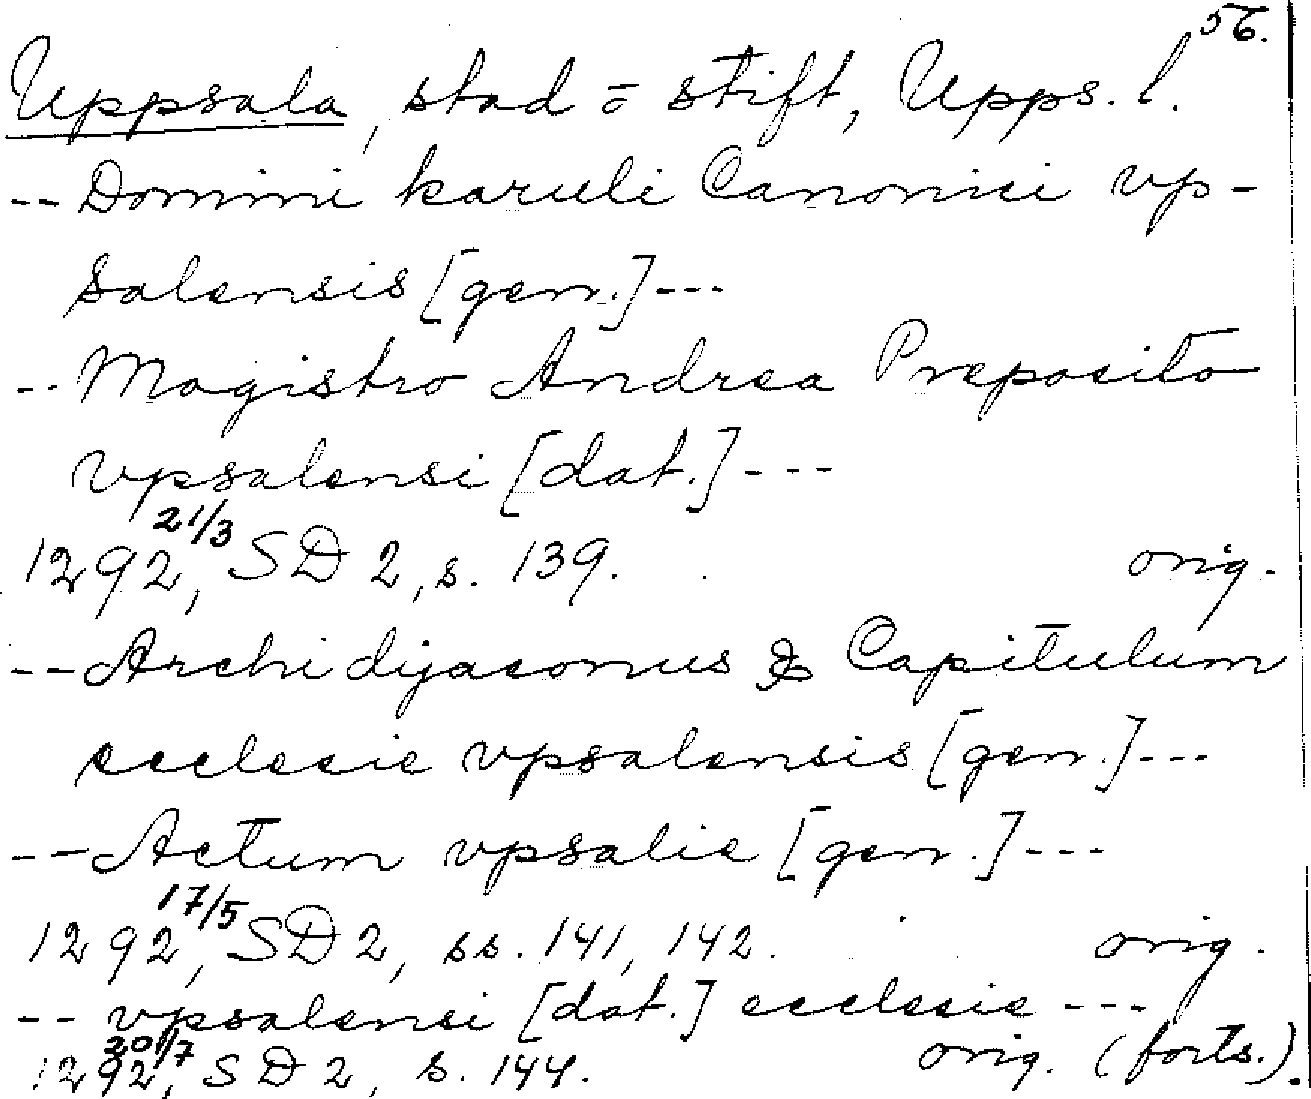 56.
Uppsala, stad o stift, Upps. l.
-- Domini karuli Canonici vp-
salensis [gen.] ---
-- Magistro Andrea Preposito
vpsalensi [dat.] ---
1292 21/3, SD 2, s. 139. orig.
-- Archidyaconus & Capitulum
ecclesie vpsalensis [gen.] ---
-- Actum vpsalie [gen.] ---
1292 17/5, SD 2, ss. 141, 142. orig.
-- vpsalensi [dat.] ecclesie ---
1292 20/7, SD 2, s. 144. orig. (forts.).